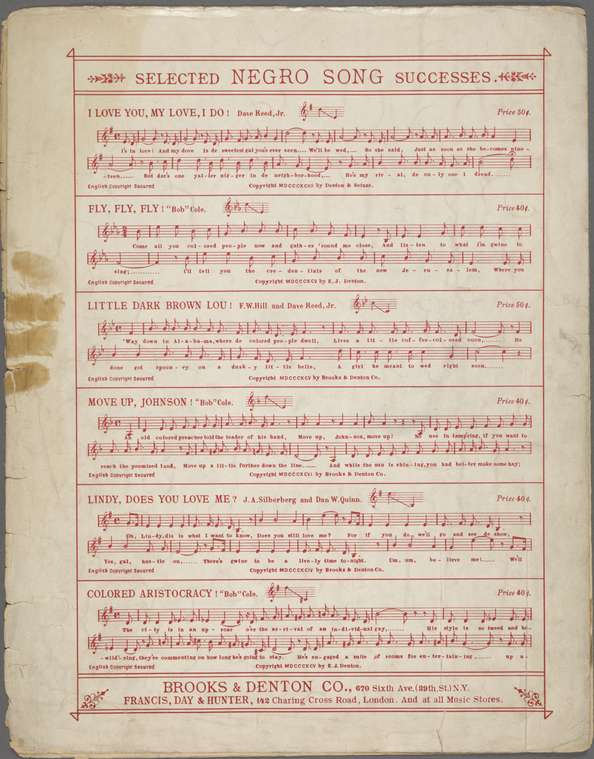 SELECTED NEGRO SONG SUCCESSES.
I LOVE YOU, MY LOVE, I DO! Dave Reed, Jr. Price 50¢.
I's in love! And my dove Is de sweetest gal you's ever seen.... We'll be wed,... So she said, Just as soon as she be-comes nine-
-teen..... But dar's one yal-ler nig-ger in de neigh-bor-hood,... He's my riv-al, de on-ly one I dread. ......
English Copyright Secured Copyright MDCCCXCVII by Denton & Seixas.
FLY, FLY, FLY! "Bob" Cole. Price 40¢.
Come all you cul-ored peo-ple now and gath-er 'round me close, And lis-ten to what I'm gwine to
sing;........... I'll tell you the cre-den-tials of the new Je-ru-sa-lem, Where you
English Copyright Secured Copyright MDCCCXCV by E. J. Denton.
LITTLE DARK BROWN LOU! F.W. Hill and Dave Reed, Jr. Price 50¢.
'Way down in Al-a-ba-ma, where de colored peo-ple dwell, Lives a lit-tle cof-fee-col-ored coon,..... He
done got spoon-ey on a dusk-y lit-tle belle, A girl he meant to wed right soon.......
English Copyright Secured Copyright MDCCCXCVII by Brooks & Denton Co.
MOVE UP, JOHNSON! "Bob" Cole. Price 40¢.
An old colored preacher told the leader of his band, Move up, John-son, move up! No use in tamp'ring, if you want to
reach the promised land, Move up a lit-tle further down the line,..... And while the sun is shin-ing, you had bet-ter make some hay;
English Copyright Secured Copyright MDCCCXCVI by Brooks & Denton Co.
LINDY, DOES YOU LOVE ME? J.A. Silberberg and Dan W. Quinn. Price 40¢.
Oh, Lin-dy, dis is what I want to know, Does you still love me? For if you do, we'll go and see de show,
Yes, gal, hus-tle on,..... There's gwine to be a live-ly time to-night. Um, um, be-lieve me!..... We'll
English Copyright Secured Copyright MDCCCXCIV by Brooks & Denton Co.
COLORED ARISTOCRACY! "Bob" Cole. Price 40¢.
The ci-ty is in an up-roar o'er the ar-ri-val of an in-di-vid-ual gay,..... His style is so tuned and be-
-wild'-ring, they're commenting on how long he's going to stay. He's en-gaged a suite of rooms for en-ter-tain-ing,...... up a-
English Copyright Secured Copyright MDCCCXCV by E. J. Denton.
BROOKS & DENTON CO., 670 Sixth Ave. (39th, St.) N.Y.
FRANCIS, DAY & HUNTER, 142 Charing Cross Road, London. And at all Music Stores.